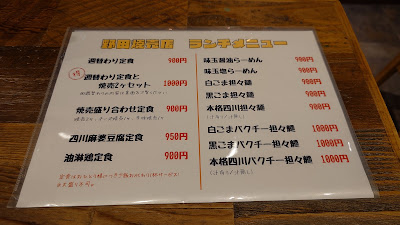 野田焼売店 ランチメニュー
週替わり定食 900円
得 週替わり定食と
焼売2ヶセット 1000円
焼売盛り合わせ定食 900円
四川麻婆豆腐定食 950円
油淋鶏定食 900円
味玉醤油らーめん 900円
味玉塩らーめん 900円
白ごま担々麺 900円
黒ごま担々麺 900円
本格四川担々麺 900円
(汁有り/汁無し)
白ごまパクチー担々麺 1000円
黒ごまパクチー担々麺 1000円
本格四川パクチー担々麺 1000円
(汁有り/汁無し)